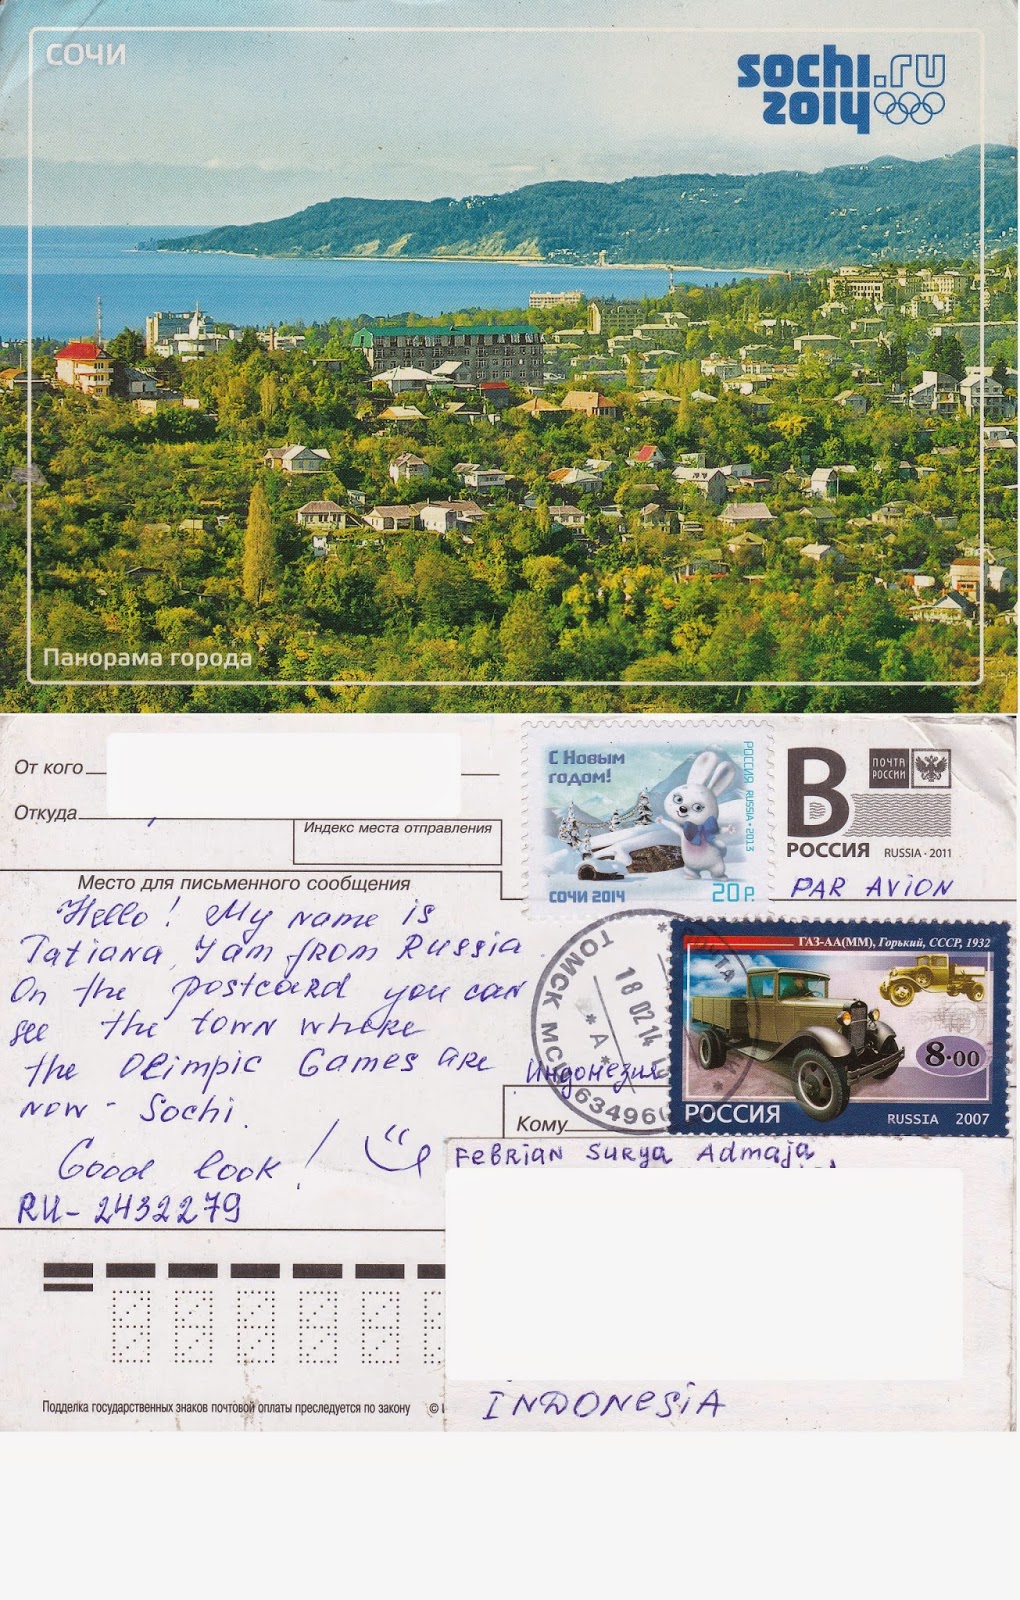 СОЧИ
sochi.ru
2014
Панорама города
От кого
Откуда
Индекс места отправления
Место для письменного сообщения
Hello! My name is
Tatiana, I am from Russia
On the postcard you can
see the town where
the Olimpic Games are
now - Sochi.
Good look!
RU-2432279
С Новым
годом!
РОССИЯ RUSSIA · 2013
СОЧИ 2014
20 Р.
B
ПОЧТА
РОССИИ
РОССИЯ RUSSIA · 2011
PAR AVION
ТОМСК МСЦ 634960
18 02 14
*А*
ГАЗ-АА(ММ), Горький, СССР, 1932
8·00
РОССИЯ RUSSIA 2007
Индонезия
Кому
Febrian Surya Admaja
INDONesiA
Подделка государственных знаков почтовой оплаты преследуется по закону ©